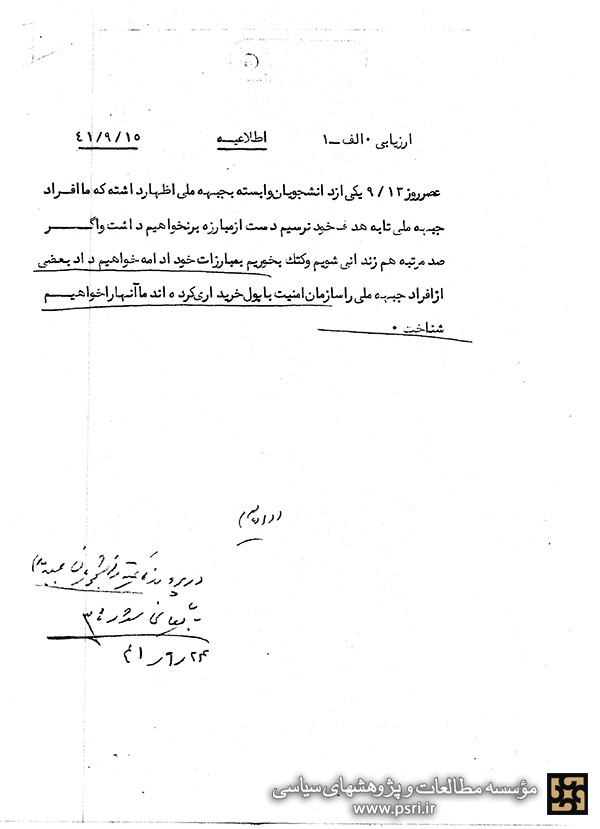 ارزیابی ۰ الف ــ ۱ اطلاعیـــه ٤١/٩/١٥
عصرروز ٩/١٣ یکی ازدانشجویان وابسته بجبهه ملی اظهارداشته که ما افــراد
جبهه ملی تابه هدف خود نرسیم دست ازمبارزه برنخواهیم داشت واگـــر
صد مرتبه هم زندانی شویم وکتک بخوریم بمبارزات خود ادامه خواهیم داد بعضی
ازافراد جبهه ملی راسازمان امنیت باپول خریداری کرده اند ما آنهاراخواهیــم
شناخت ۰
در پرونده دانشجویان جبهه ملی
بایگانی شود
٤١/٩/٢٤
مؤسسه مطالعات و پژوهشهای سیاسی
www.psri.ir